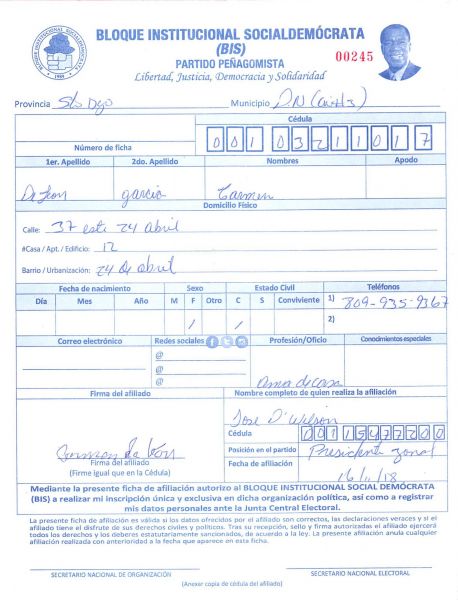 BLOQUE INSTITUCIONAL SOCIALDEMÓCRATA
(BIS)
PARTIDO PEÑAGOMISTA
Libertad, Justicia, Democracia y Solidaridad
00245
BLOQUE INSTITUCIONAL SOCIALDEMOCRATA
Provincia Sto Dgo Municipio D.N
Cédula
Número de ficha 001 0321101 7
1er. Apellido 2do. Apellido Nombres Apodo
De Leon garcia Carmen
Domicilio Físico
Calle: 37 este 24 abril
#Casa / Apt. / Edificio: 12
Barrio / Urbanización: 24 de abril
Fecha de nacimiento Sexo Estado Civil Teléfonos
Día Mes Año M F Otro C S Conviviente 1) 809-935-9367
/ / 2)
Correo electrónico Redes sociales Profesión/Oficio Conocimientos especiales
@
@
@
Ama de casa
Firma del afiliado Nombre completo de quien realiza la afiliación
Jose D' Wilson
Cédula 00115477200
Posición en el partido Presidente zonal
Firma del afiliado
(Firme igual que en la Cédula)
Fecha de afiliación 16/11/18
Mediante la presente ficha de afiliación autorizo al BLOQUE INSTITUCIONAL SOCIAL DEMÓCRATA
(BIS) a realizar mi inscripción única y exclusiva en dicha organización política, así como a registrar
mis datos personales ante la Junta Central Electoral.
La presente ficha de afiliación es válida si los datos ofrecidos por el afiliado son correctos, las declaraciones veraces y si el
afiliado tiene el disfrute de sus derechos civiles y políticos. Tras su recepción, sello y firma autorizadas el afiliado ejercerá
todos los derechos y los deberes estatutariamente sancionados, de acuerdo a la ley. La presente afiliación anula cualquier
afiliación realizada con anterioridad a la fecha que aparece en esta ficha.
SECRETARIO NACIONAL DE ORGANIZACIÓN SECRETARIO NACIONAL ELECTORAL
(Anexar copia de cédula del afiliado)